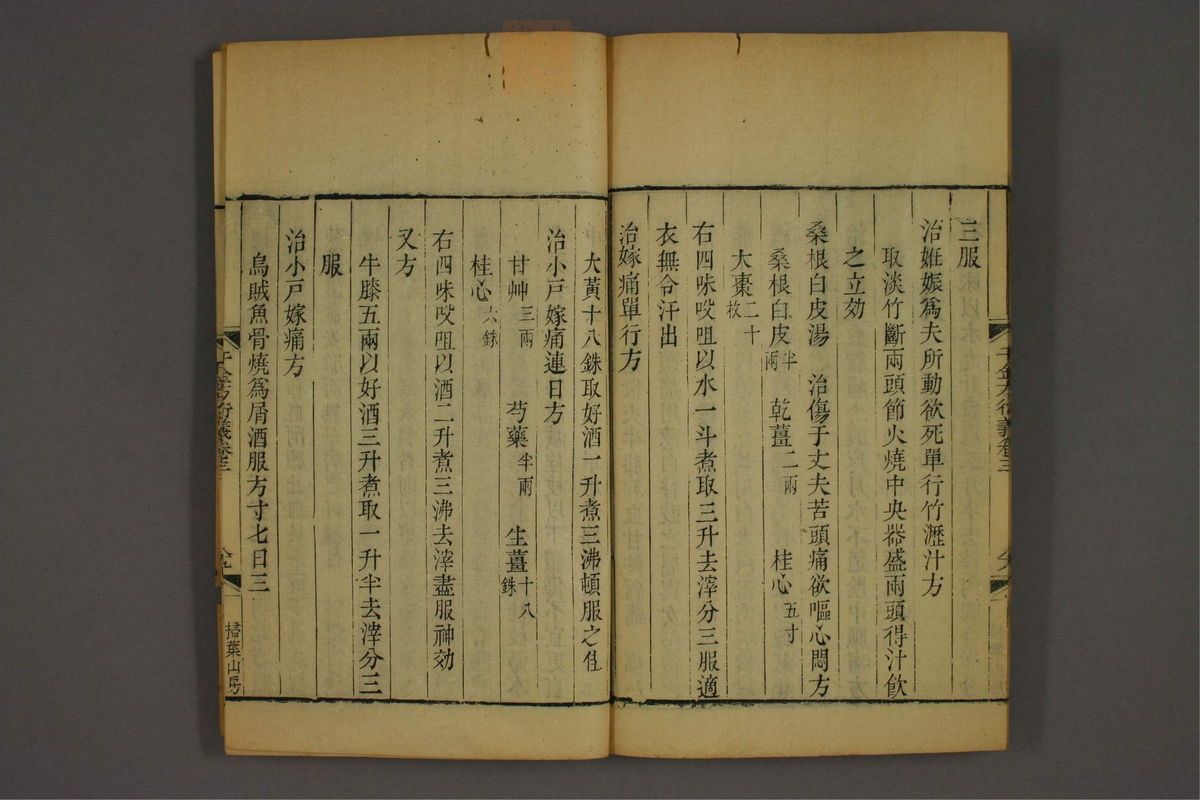 三服
治妊娠爲夫所動欲死單行竹瀝汁方
取淡竹斷兩頭節火燒中央器盛兩頭得汁飲
之立効
桑根白皮湯　治傷于丈夫苦頭痛欲嘔心悶方
桑根白皮半兩　乾薑二兩　桂心五寸
大棗二十枚
右四味㕮咀以水一斗煮取三升去滓分三服適
衣無令汗出
治嫁痛單行方
大黃十八銖取好酒一升煮三沸頓服之佳
治小戸嫁痛連日方
甘艸三兩　芍藥半兩　生薑十八銖
桂心六銖
右四味㕮咀以酒二升煮三沸去滓盡服神効
又方
牛膝五兩以好酒三升煮取一升半去滓分三
服
治小戸嫁痛方
烏賊魚骨燒爲屑酒服方寸七日三
千金方衍義卷三
掃葉山房